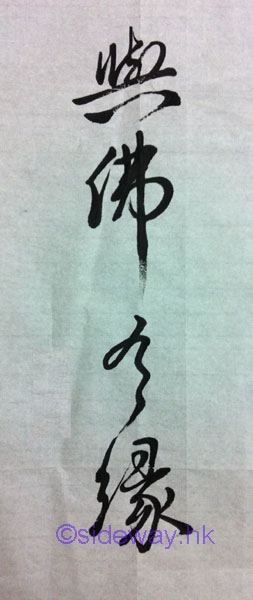 與佛有緣
©sideway.hk